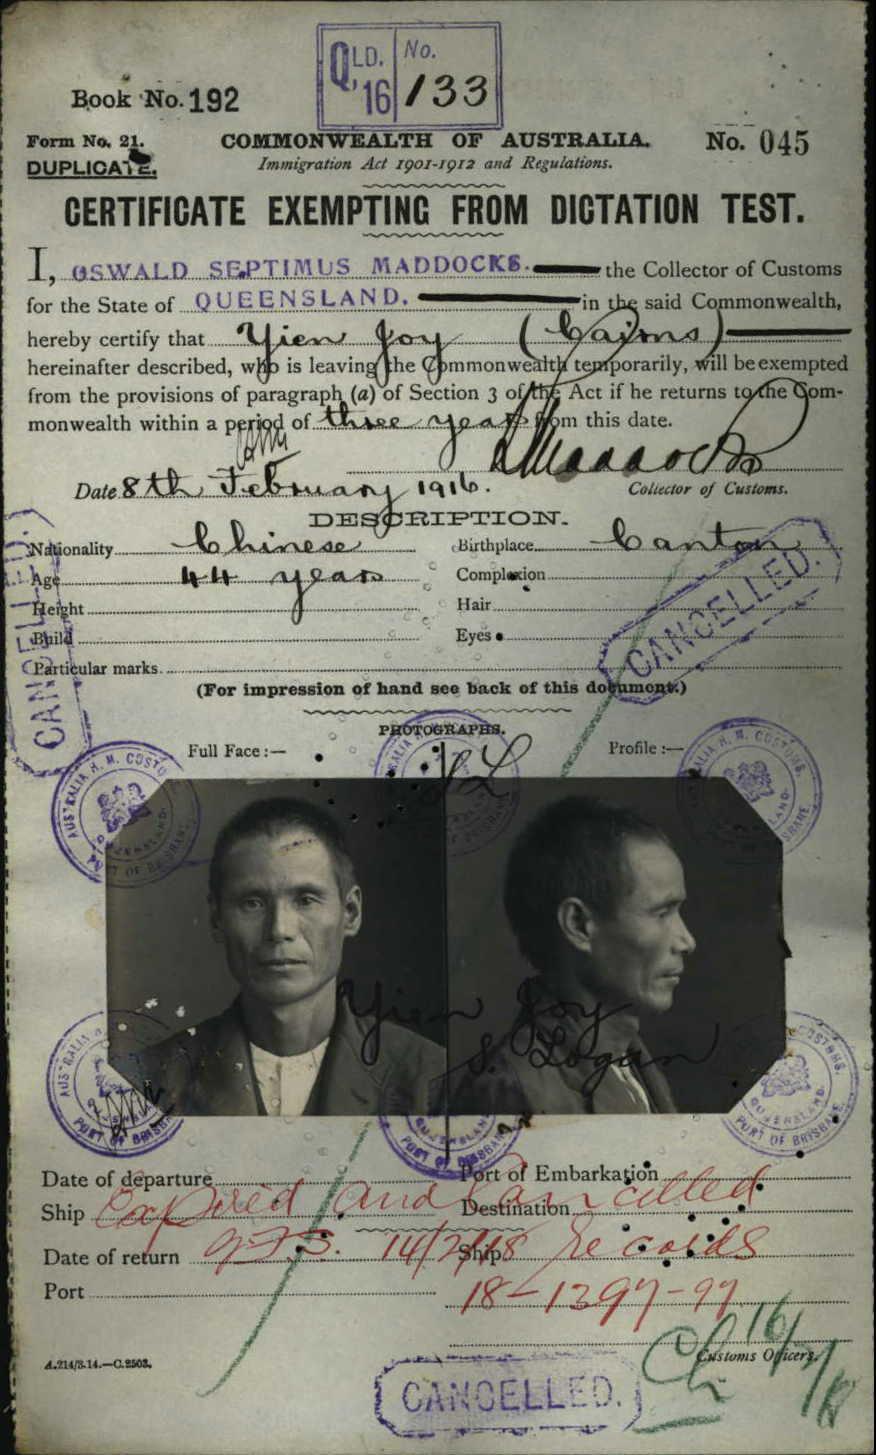 QLD. No.
'16 133
Book No. 192
Form No. 21. COMMONWEALTH OF AUSTRALIA. No. 045
DUPLICATE. Immigration Act 1901-1912 and Regulations.
CERTIFICATE EXEMPTING FROM DICTATION TEST.
I, OSWALD SEPTIMUS MADDOCKS. the Collector of Customs
for the State of QUEENSLAND. in the said Commonwealth,
hereby certify that Yien Joy (Cairns)
hereinafter described, who is leaving the Commonwealth temporarily, will be exempted
from the provisions of paragraph (a) of Section 3 of the Act if he returns to the Com-
monwealth within a period of three years from this date.
Maddocks
Date 8th February 1916. Collector of Customs.
DESCRIPTION.
Nationality Chinese Birthplace Canton
Age 44 years Complexion
Height Hair
Build Eyes
Particular marks.
CANCELLED.
CANCELLED.
(For impression of hand see back of this document.)
PHOTOGRAPHS.
Full Face :— Profile :—
AUSTRALIA H. M. CUSTOMS.
QUEENSLAND.
PORT OF BRISBANE
Yien Joy
S. Logan
Date of departure Port of Embarkation
Ship Destination
Expired and Cancelled
Date of return Ship
14/2/18 Records
Port 18-1397-97
Customs Officers.
A.214/3.14.—C.2503.
CANCELLED.